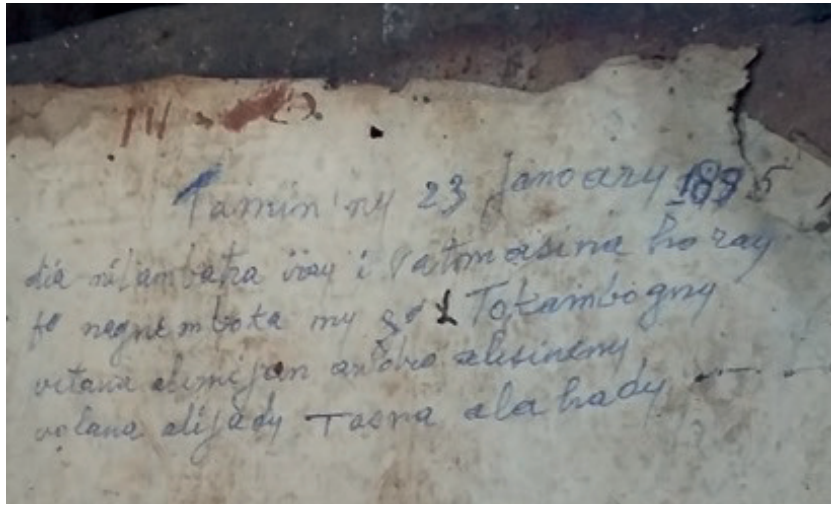 14
Tamin'ny 23 Janoary 1895
dia niJambatra iray i Ratomasina horay
fo negnemboka my so Tokambogny
vitana alimijan andro alisineny
volana alijady Taona alahady